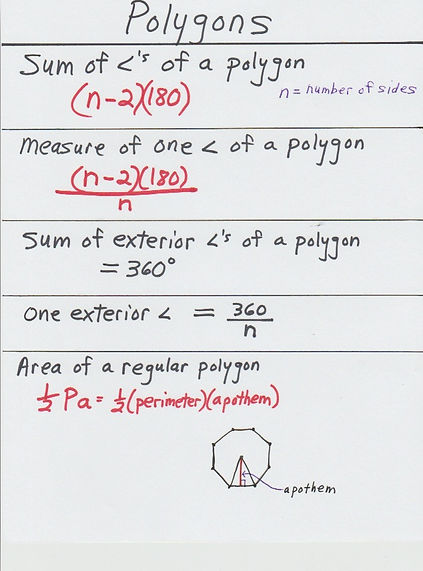 Polygons
Sum of <'s of a polygon
(n-2)(180)
n = number of sides
measure of one < of a polygon
(n-2)(180)
n
Sum of exterior <'s of a polygon
= 360°
One exterior < = 360
n
Area of a regular polygon
½ Pa = ½(perimeter)(apothem)
apothem